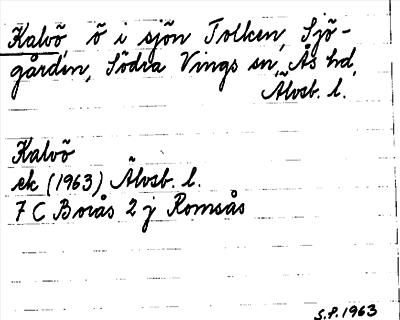 Kalvö, ö i sjön Tolken, Sjö-
gården, Södra Vings sn, Ås hd,
Älvsb. l.
Kalvö
ek (1963) Älvsb. l.
7 C Borås 2 j Romsås
S.P. 1963